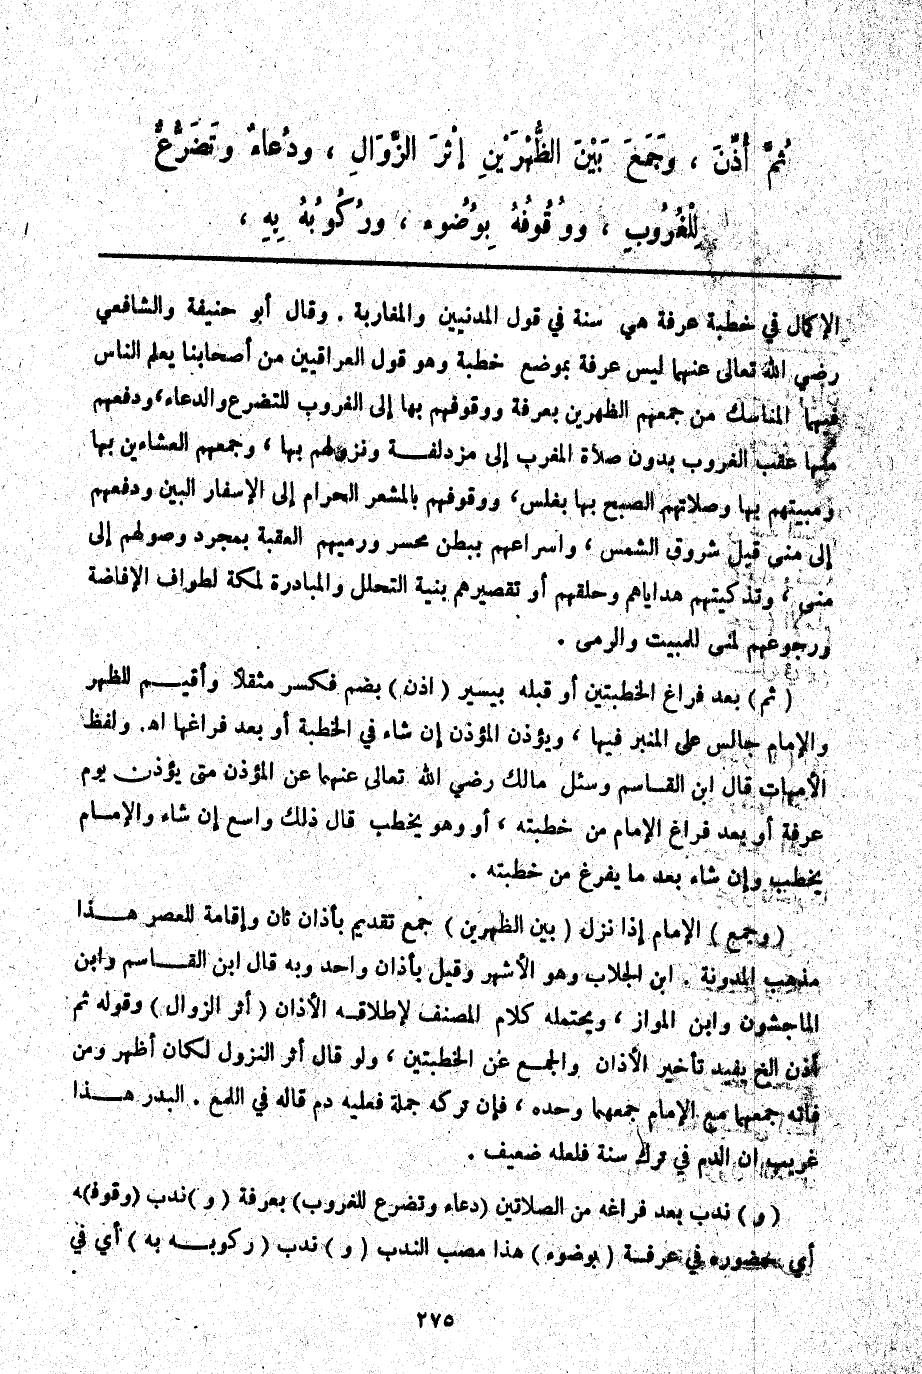 ثُمَّ أُذِّنَ ، وَجَمَعَ بَيْنَ الظُّهْرَيْنِ إِثْرَ الزَّوَالِ ، ودُعاءٌ وتَضَرُّعٌ
لِلْغُرُوبِ ، ووُقُوفُهُ بِوُضُوء ، ورُكُوبُهُ بِهِ ،
الإكمال في خطبة عرفة هي سنة في قول المدنيين والمغاربة . وقال أبو حنيفة والشافعي
رضي الله تعالى عنهما ليس عرفة بموضع خطبة وهو قول العراقيين من أصحابنا يعلم الناس
فيها المناسك من جمعهم الظهرين بعرفة ووقوفهم بها إلى الغروب للتضرع والدعاء، ودفعهم
منها عقب الغروب بدون صلاة المغرب إلى مزدلفـــة ونزولهم بها ، وجمعهم العشاءين بها
ومبيتهم بها وصلاتهم الصبح بها بغلس، ووقوفهم بالمشعر الحرام إلى الإسفار البين ودفعهم
إلى منى قبل شروق الشمس ، واسراعهم ببطن محسر ورميهم العقبة بمجرد وصولهم إلى
منى ، وتذكيتهم هداياهم وحلقهم أو تقصيرهم بنية التحلل والمبادرة لمكة لطواف الإفاضة
ورجوعهم لمنى للمبيت والرمى .
( ثم ) بعد فراغ الخطبتين أو قبله بيسير ( اذن ) بضم فكسر مثقلاً وأقيـــم للظهر
والإمام جالس على المنبر فيها ، ويؤذن المؤذن إن شاء في الخطبة أو بعد فراغها اهـ. ولفظ
الأمهات قال ابن القـاسم وسئل مالك رضي الله تعالى عنهما عن المؤذن متى يؤذن يوم
عرفة أو بعد فراغ الإمام من خطبته ، أو وهو يخطب قال ذلك واسع إن شاء والإمـام
يخطب وإن شاء بعد ما يفرغ من خطبته .
( وجمع ) الإمام إذا نزل ( بين الظهرين ) جمع تقديم بأذان ثان وإقامة للعصر هـــذا
مذهب المدونة . ابن الجلاب وهو الأشهر وقيل بأذان واحد وبه قال ابن القـــاسم وابن
الماجشون وابن المواز ، ويحتمله كلام المصنف لإطلاقــه الأذان ( أثر الزوال ) وقوله ثم
أذن الخ يفيد تأخير الأذان والجمــع عن الخطبتين ، ولو قال أثر النزول لكان أظهر ومن
فاته جمعهما مع الإمام جمعهما وحده ، فإن تركه جملة فعليه دم قاله في اللمع . البدر هـــذا
غريب ان الدم في ترك سنة فلعله ضعيف .
( و ) ندب بعد فراغه من الصلاتين (دعاء وتضرع للغروب) بعرفة ( و )ندب (وقوف)ه
أي حضوره في عرفــة ( بوضوء ) هذا مصب الندب ( و ) ندب ( ركوبـــه به ) أي في
٢٧٥